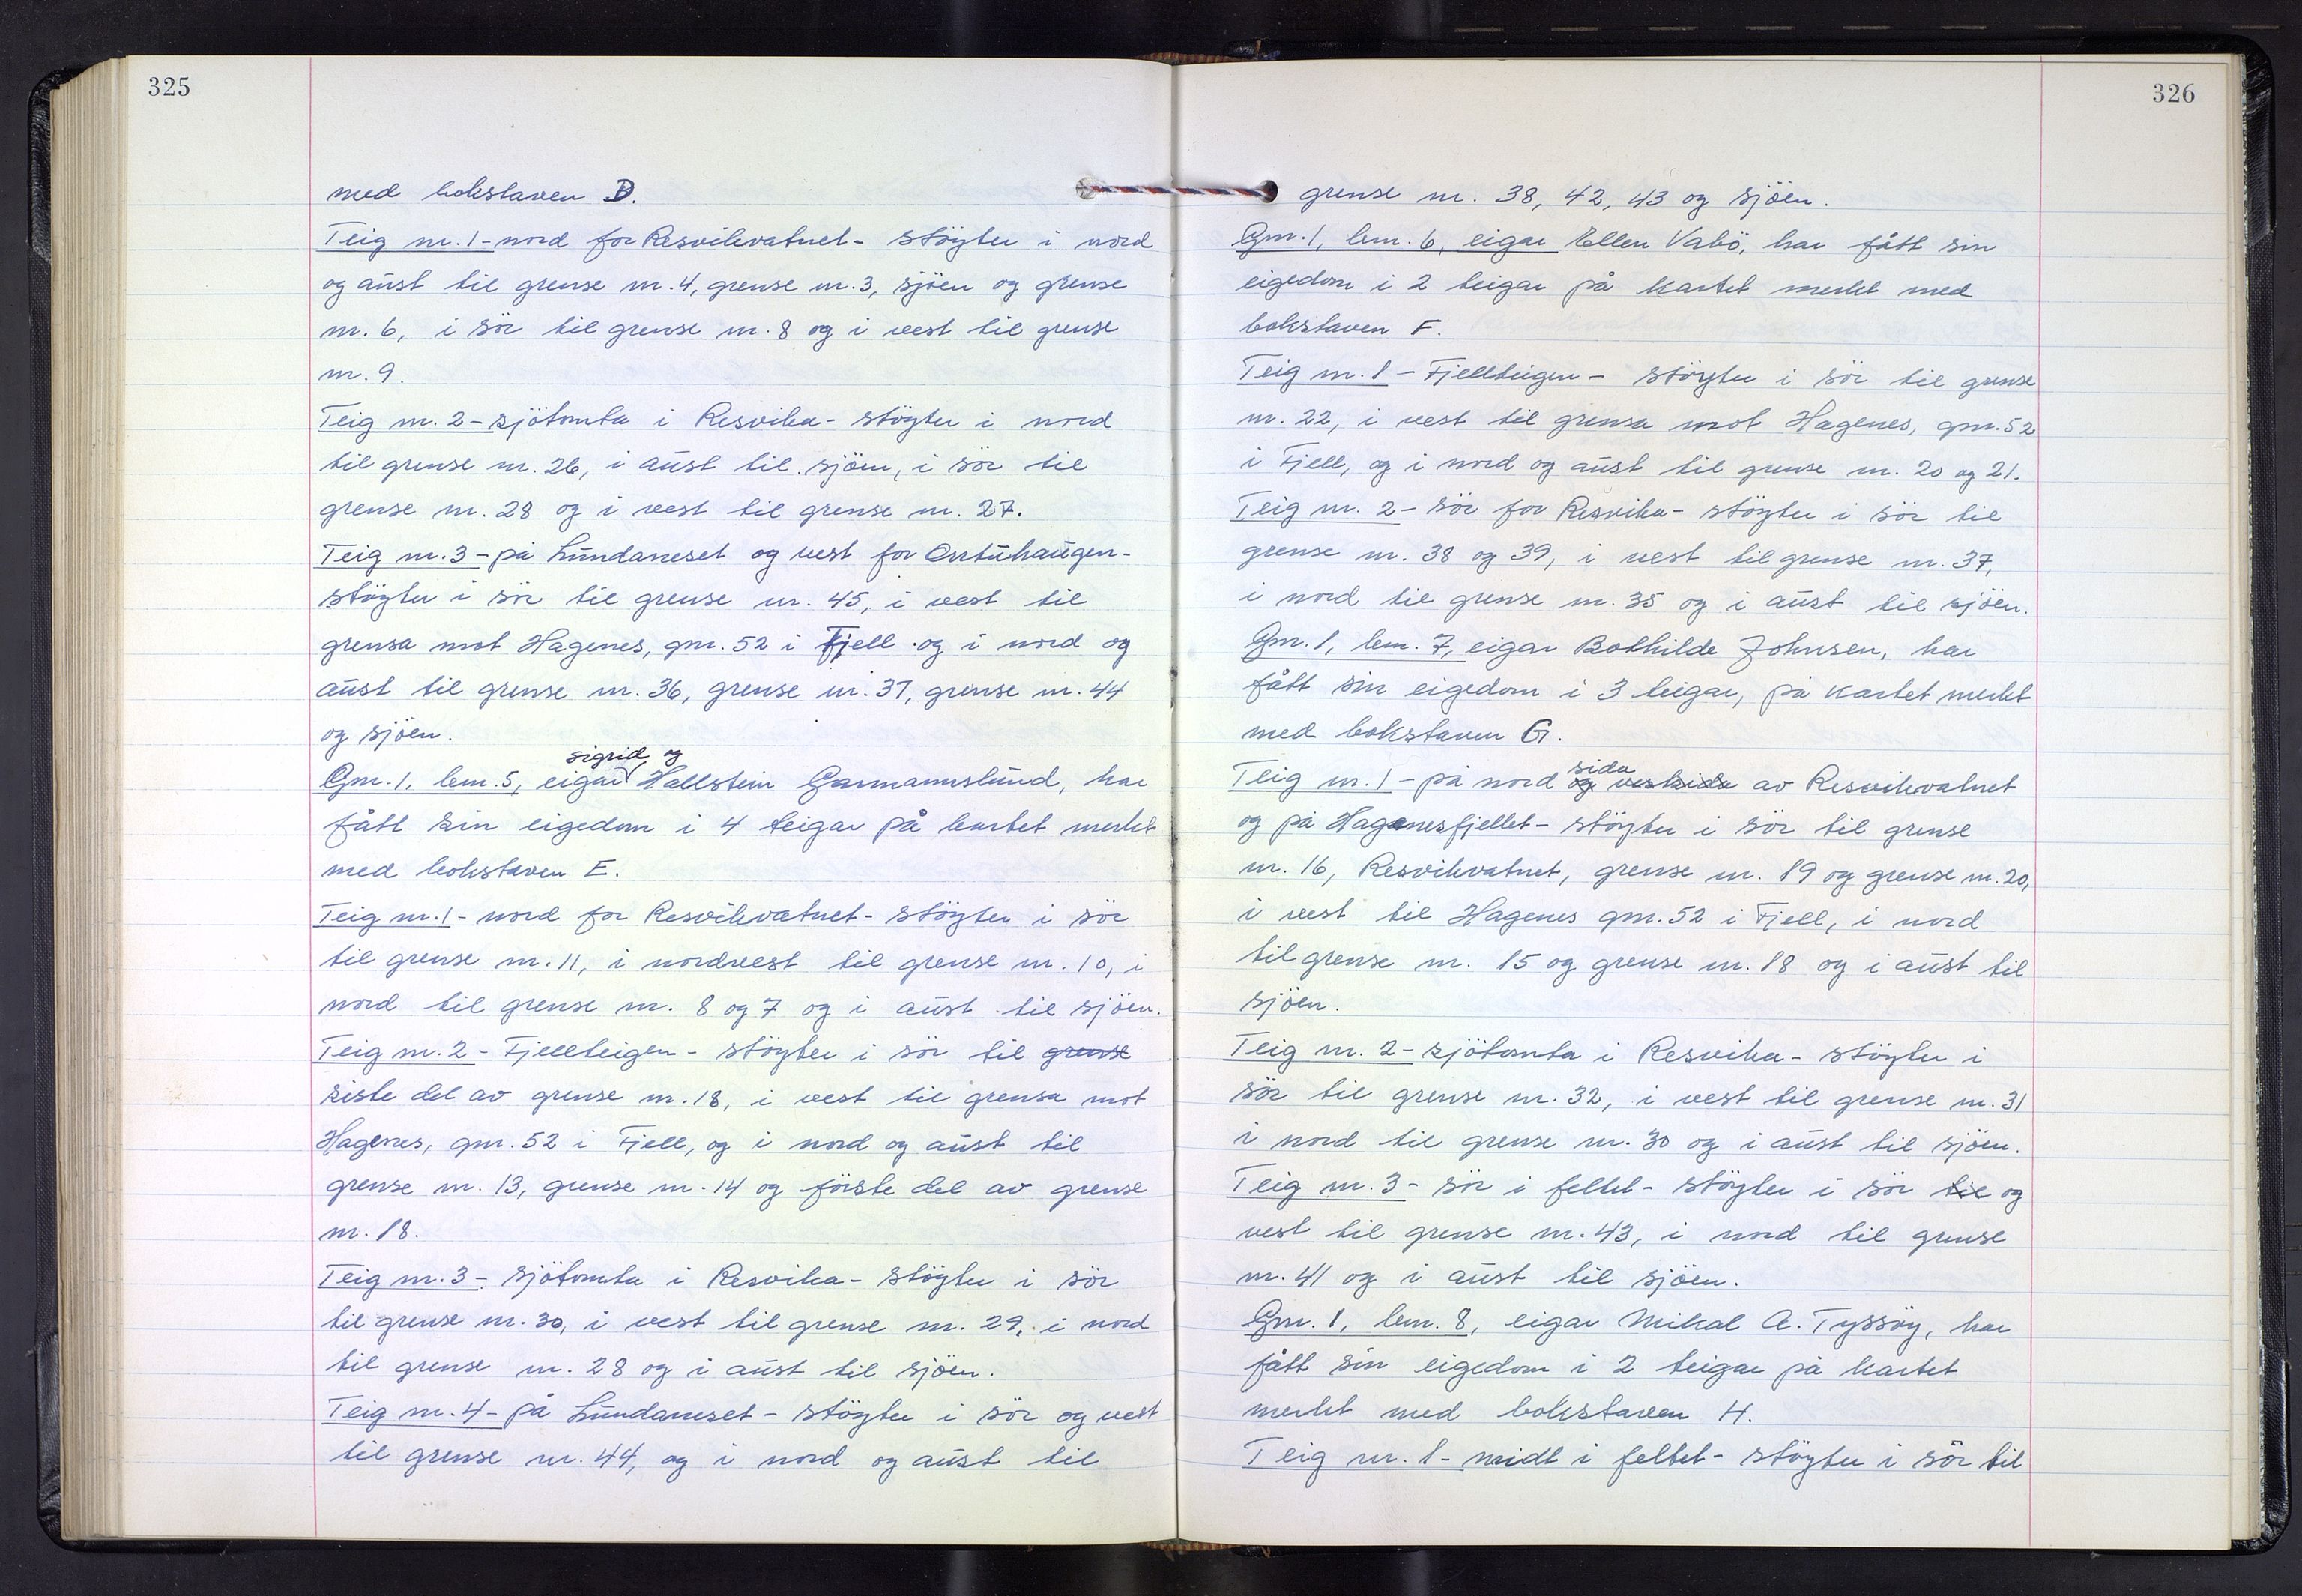 325
med bokstaven D.
Teig nr. 1 - nord for Resvikvatnet - støyter i nord
og aust til grense nr. 4, grense nr. 3, sjöen og grense
nr. 6, i sör til grense nr. 8 og i vest til grense
nr. 9.
Teig nr. 2 - sjötomta i Resvika - stöyter i nord
til grense nr. 26, i aust til sjöen, i sör til
grense nr. 28 og i vest til grense nr. 27.
Teig nr. 3 - på Lundaneset og vest for Orrtuhaugen -
stöyter i sör til grense nr. 45, i vest til
grensa mot Hagenes, gnr. 52 i Fjell og i nord og
aust til grense nr. 36, grense nr. 37, grense nr. 44
og sjöen.
sigrid og
Gnr. 1, bnr. 5, eigar Hallstein Garmannslund, har
fått sin eigedom i 4 teigar på kartet merket
med bokstaven E.
Teig nr. 1 - nord for Resvikvatnet - stöyter i sör
til grense nr. 11, i nordvest til grense nr. 10, i
nord til grense nr. 8 og 7 og i aust til sjöen.
Teig nr. 2 - Fjellteigen - stöyter i sör til grense
siste del av grense nr. 18, i vest til grensa mot
Hagenes, gnr. 52 i Fjell, og i nord og aust til
grense nr. 13, grense nr. 14 og förste del av grense
nr. 18.
Teig nr. 3 - sjötomta i Resvika - stöyter i sör
til grense nr. 30, i vest til grense nr. 29, i nord
til grense nr. 28 og i aust til sjöen.
Teig nr. 4 - på Lundaneset - stöyter i sör og vest
til grense nr. 44, og i nord og aust til
326
grense nr. 38, 42, 43 og sjöen.
Gnr. 1, bnr. 6, eigar Ellen Vabö, har fått sin
eigedom i 2 teigar på kartet merket med
bokstaven F.
Teig nr. 1 - Fjellteigen - stöyter i sör til grense
nr. 22, i vest til grensa mot Hagenes, gnr. 52
i Fjell, og i nord og aust til grense nr. 20 og 21.
Teig nr. 2 - sör for Resvika - stöyter i sör til
grense nr. 38 og 39, i vest til grense nr. 37,
i nord til grense nr. 35 og i aust til sjöen.
Gnr. 1, bnr. 7, eigar Bothilde Johnsen, har
fått sin eigedom i 3 teigar, på kartet merket
med bokstaven G.
sida
Teig nr. 1 - på nord og vestsida av Resvikvatnet
og på Hagenesfjellet - stöyter i sör til grense
nr. 16, Resvikvatnet, grense nr. 19 og grense nr. 20,
i vest til Hagenes gnr. 52 i Fjell, i nord
til grense nr. 15 og grense nr. 18 og i aust til
sjöen.
Teig nr. 2 - sjötomta i Resvika - stöyter i
sör til grense nr. 32, i vest til grense nr. 31
i nord til grense nr. 30 og i aust til sjöen.
Teig nr. 3 - sör i feltet - stöyter i sör til og
vest til grense nr. 43, i nord til grense
nr. 41 og i aust til sjöen.
Gnr. 1, bnr. 8, eigar Mikal A. Tyssöy, har
fått sin eigedom i 2 teigar på kartet
merket med bokstaven H.
Teig nr. 1 - midt i feltet - stöyter i sör til